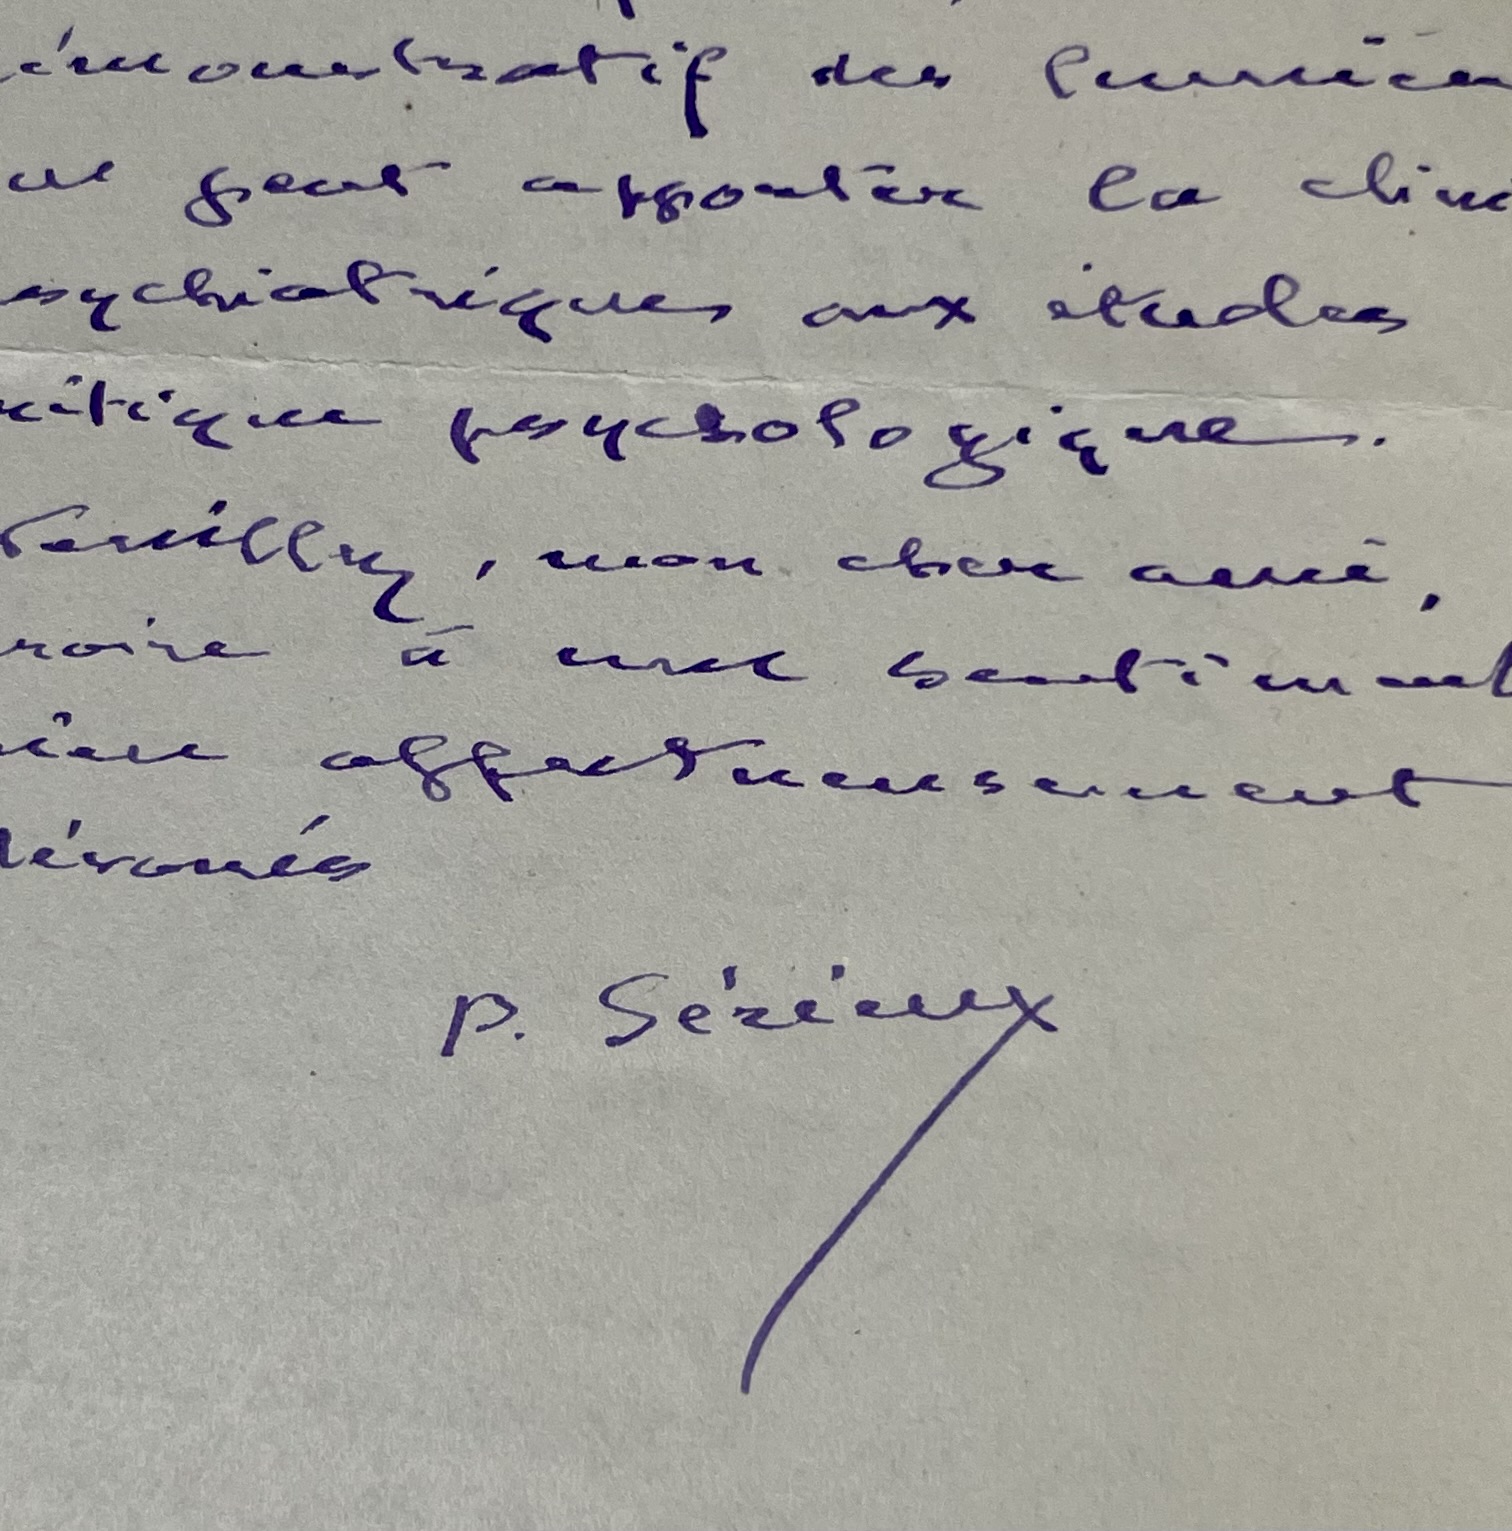 émonstratif des lumièr
ue peut apporter la clini
psychiatriques aux études
ritique psychologique.
Veuillez, mon cher ami,
roire à mes sentiments
ien affectueusement
dévoués
P. Sérieux